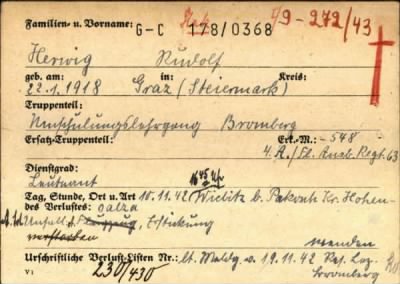 Familien- u. Vorname: G-C 178/0368 I/9-272/43
Herwig Rudolf
geb. am: in: Kreis:
22.1.1918 Graz (Steiermark)
Truppenteil:
Umschulungslehrgang Bromberg
Ersatz-Truppenteil: Erk.-M.: -548
4. A./Fl. Ausb. Regt. 63
Dienstgrad:
Leutnant 16 45 Uhr
Tag, Stunde, Ort u. Art 10.11.42 b. Pakosch Kr. Hohen-
des Verlustes: salza
Unfall Erstickung
verstorben
Urschriftliche Verlust-Listen Nr.: lt. Meldg. v. 19.11.42 Res. Laz.
V1 230/430 Bromberg